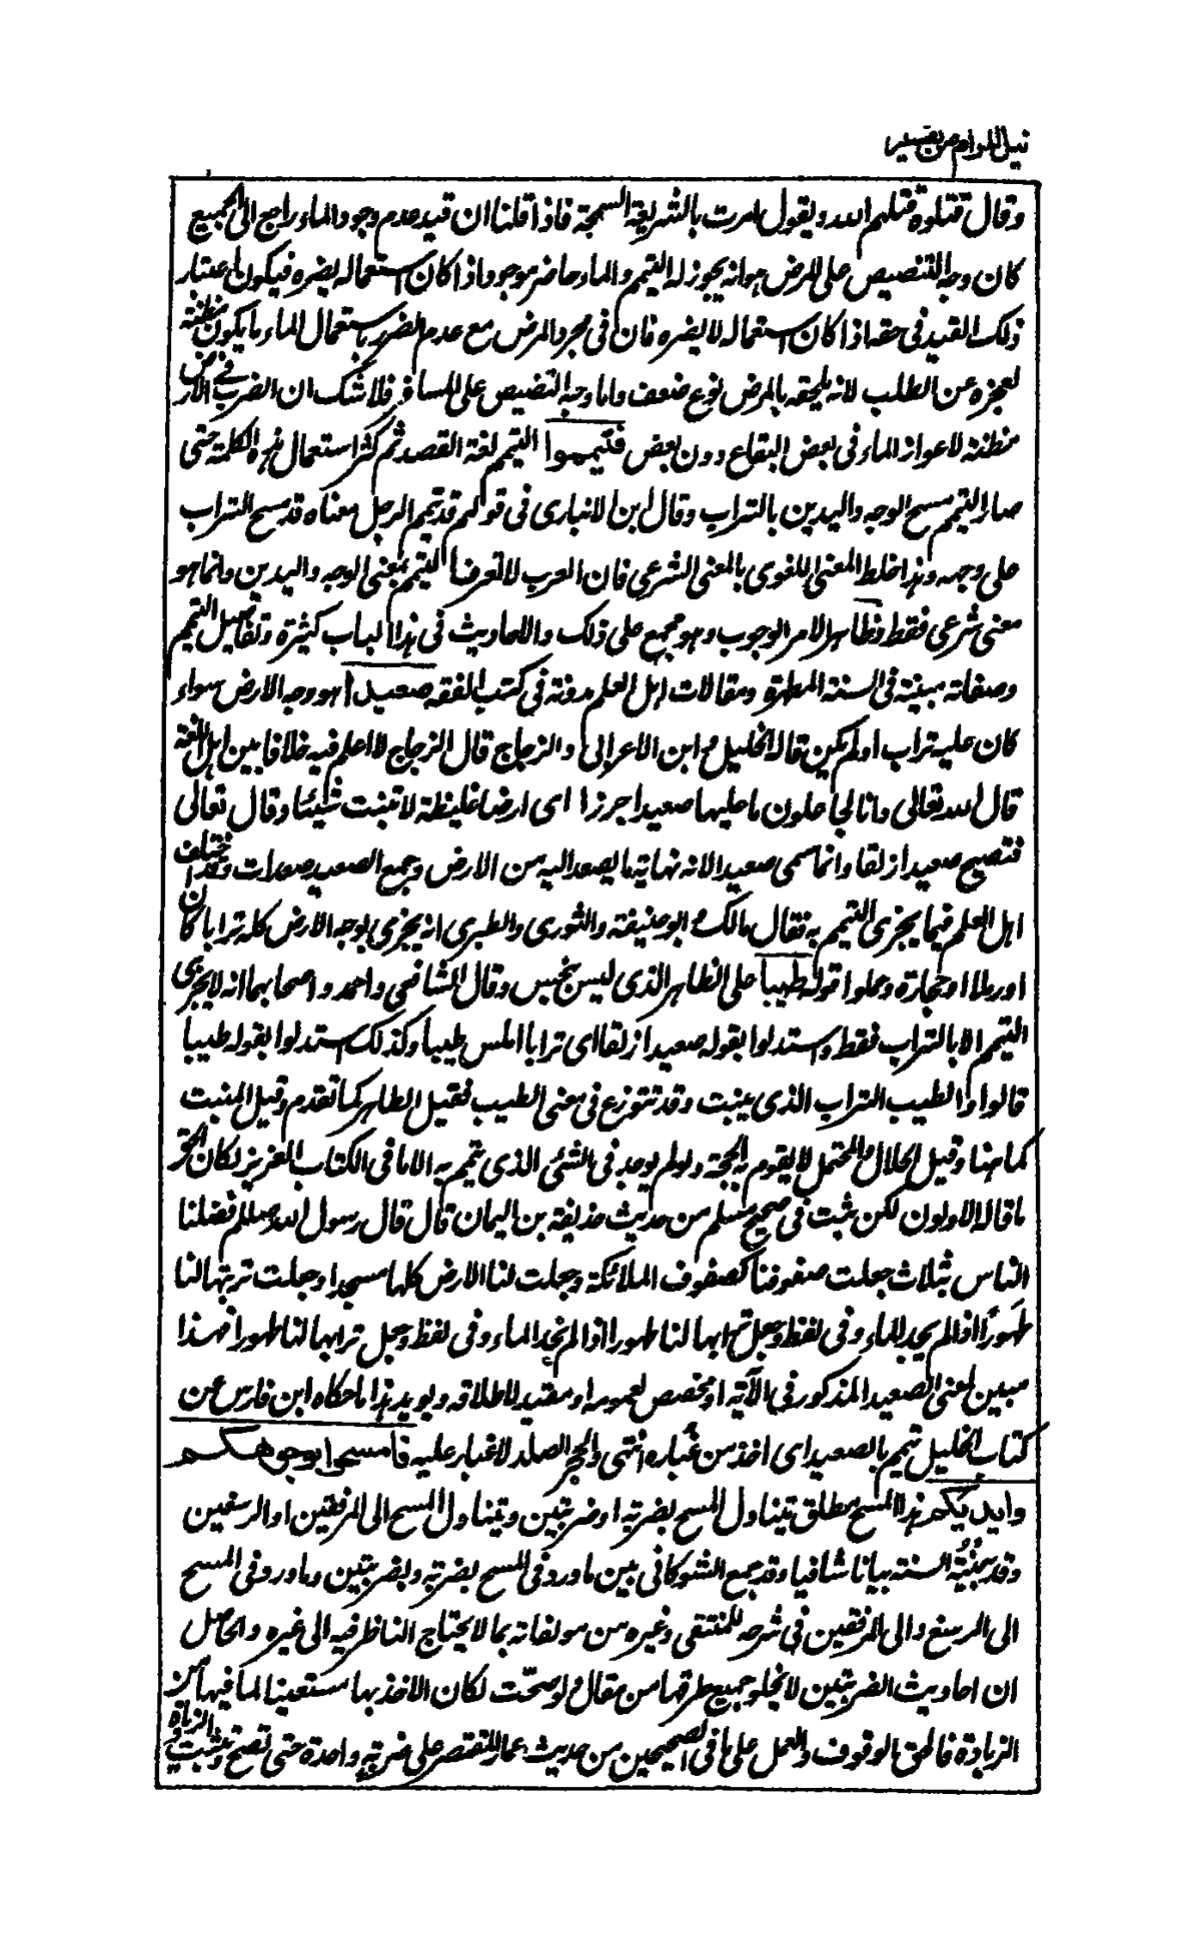 نيل المرام من تفسير
وقال قتلوه قتلهم الله ويقول امرت بالشريعة السمحة فاذا قلنا ان قيد عدم وجود الماء راجع الى الجميع
كان وجه التنصيص على المرض هو انه يجوز له التيمم والماء حاضر موجود اذا كان استعماله يضره فيكون اعتبار
ذلك القيد فى حقه اذا كان استعماله لا يضره فان فى مجرد المرض مع عدم الضرر باستعمال الماء ما يكون مظنة
لعجزه عن الطلب لانه يلحقه بالمرض نوع ضعف واما وجه التنصيص على المسافر فلا شك ان الضرب فى الارض
مظنة لاعواز الماء فى بعض البقاع دون بعض فتيمموا التيمم لغة القصد ثم كثر استعمال هذه الكلمة حتى
صار التيمم مسح الوجه واليدين بالتراب وقال ابن الانبارى فى قولهم قد تيمم الرجل معناه قد مسح التراب
على وجهه وهذا خلط المعنى اللغوى بالمعنى الشرعى فان العرب لا تعرف التيمم بمعنى الوجه واليدين وانما هو
معنى شرعى فقط وظاهر الامر الوجوب وهو مجمع على ذلك والاحاديث فى هذا الباب كثيرة وتفاصيل التيمم
وصفاته مبينة فى السنة المطهرة ومقالات اهل العلم مدونة فى كتب الفقه صعيدا هو وجه الارض سواء
كان عليه تراب او لم يكن قاله الخليل وابن الاعرابى والزجاج قال الزجاج لا اعلم فيه خلافا بين اهل اللغة
قال الله تعالى وانا لجاعلون ما عليها صعيدا جرزا اى ارضا غليظة لا تنبت شيئا وقال تعالى
فتصبح صعيدا زلقا وانما سمى صعيدا لانه نهاية ما يصعد اليه من الارض وجمع الصعيد صعدات وقد اختلف
اهل العلم فيما يجزى التيمم به فقال مالك وابو حنيفة والثورى والطبرى انه يجزى بوجه الارض كله ترابا كان
او رملا او حجارة وحملوا قوله طيبا على الطاهر الذى ليس بنجس وقال الشافعى واحمد واصحابهما انه لا يجزى
التيمم الا بالتراب فقط واستدلوا بقوله صعيدا زلقا اى ترابا املس طيبا وكذلك استدلوا بقوله طيبا
قالوا والطيب التراب الذى ينبت وقد تنوزع فى معنى الطيب فقيل الطاهر كما تقدم وقيل المنبت
كما هنا وقيل الحلال والمحتمل لا يقوم به الحجة ولو لم يوجد فى الشئ الذى تيمم به الا ما فى الكتاب العزيز لكان الحق
ما قاله الاولون لكن ثبت فى صحيح مسلم من حديث حذيفة بن اليمان قال قال رسول الله صللم فضلنا
الناس بثلاث جعلت صفوفنا كصفوف الملائكة وجعلت لنا الارض كلها مسجدا وجعلت تربتها لنا
طهورًا اذا لم يجد الماء وفى لفظ وجعل ترابها لنا طهورا اذا لم نجد الماء وفى لفظ وجعل ترابها لنا طهورا فهذا
مبين لمعنى الصعيد المذكور فى الآية او مخصص لعمومه او مقيد لاطلاقه ويويد هذا ما حكاه ابن فارس عن
كتاب الخليل تيمم بالصعيد اى اخذ من غباره انتهى والحجر الصلد لا غبار عليه فامسحوا بوجوهكم
وايديكم هذا المسح مطلق يتناول المسح بضربة او ضربتين ويتناول المسح الى المرفقين او الرسغين
وقد بينته السنة بيانا شافيا وقد جمع الشوكانى بين ما ورد فى المسح بضربة وبضربتين وما ورد فى المسح
الى الرسغ والى المرفقين فى شرحه للمنتقى وغيره من مولفاته بما لا يحتاج الناظر فيه الى غيره والحاصل
ان احاديث الضربتين لا يخلو جميع طرقها من مقال ولو صحت لكان الاخذ بها متعينا لما فيها من
الزيادة فالحق الوقوف والعمل على ما فى الصحيحين من حديث عمار المقتصر على ضربة واحدة حتى تصح وتثبت الزيادة و